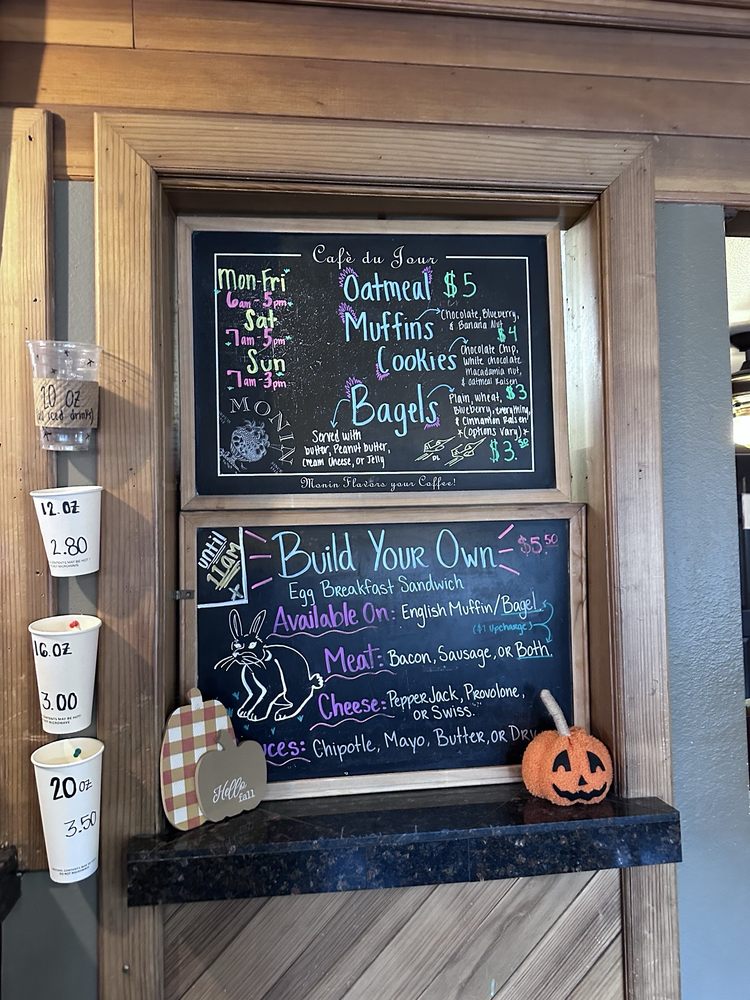 Cafè du Jour
Mon-Fri
6am-5pm
Sat
7am-5pm
Sun
7am-3pm
MONIN
Oatmeal $5
Muffins
Chocolate, Blueberry,
& Banana Nut
$4
Cookies
Chocolate Chip,
White chocolate
Macadamia nut,
& oatmeal Raisen
$3
Bagels
Plain, wheat,
Blueberry, everything,
& Cinnamon Raisen
*(options vary)*
$3.50
Served with
butter, Peanut butter,
Cream Cheese, or Jelly
Monin Flavors your Coffee!
until
11am
Build Your Own
$5.50
Egg Breakfast Sandwich
Available On: English Muffin/Bagel
($1 Upcharge)
Meat: Bacon, Sausage, or Both.
Cheese: PepperJack, Provolone,
or Swiss.
uces: Chipotle, Mayo, Butter, or Dry
Hello
fall
20 oz
iced drinks)
12.oz
2.80
16.oz
3.00
20 oz
3.50